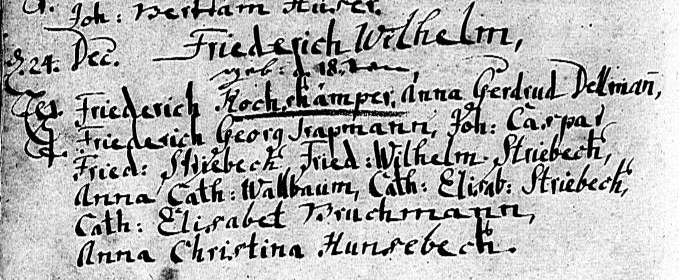 Joh: Bertram Huser.
d. 24. Dec. Friederich Wilhelm,
geb: d. 18. ten
Friederich Hochkämper, Anna Gerdrud Dellmañ,
Friederich Georg Trapmann, Joh: Caspar
Fried: Striebeck, Fried: Wilhelm Striebeck,
Anna Cath: Wallbaum, Cath: Elisab: Striebeck,
Cath: Elisabet Bruchmann,
Anna Christina Hunsebeck.